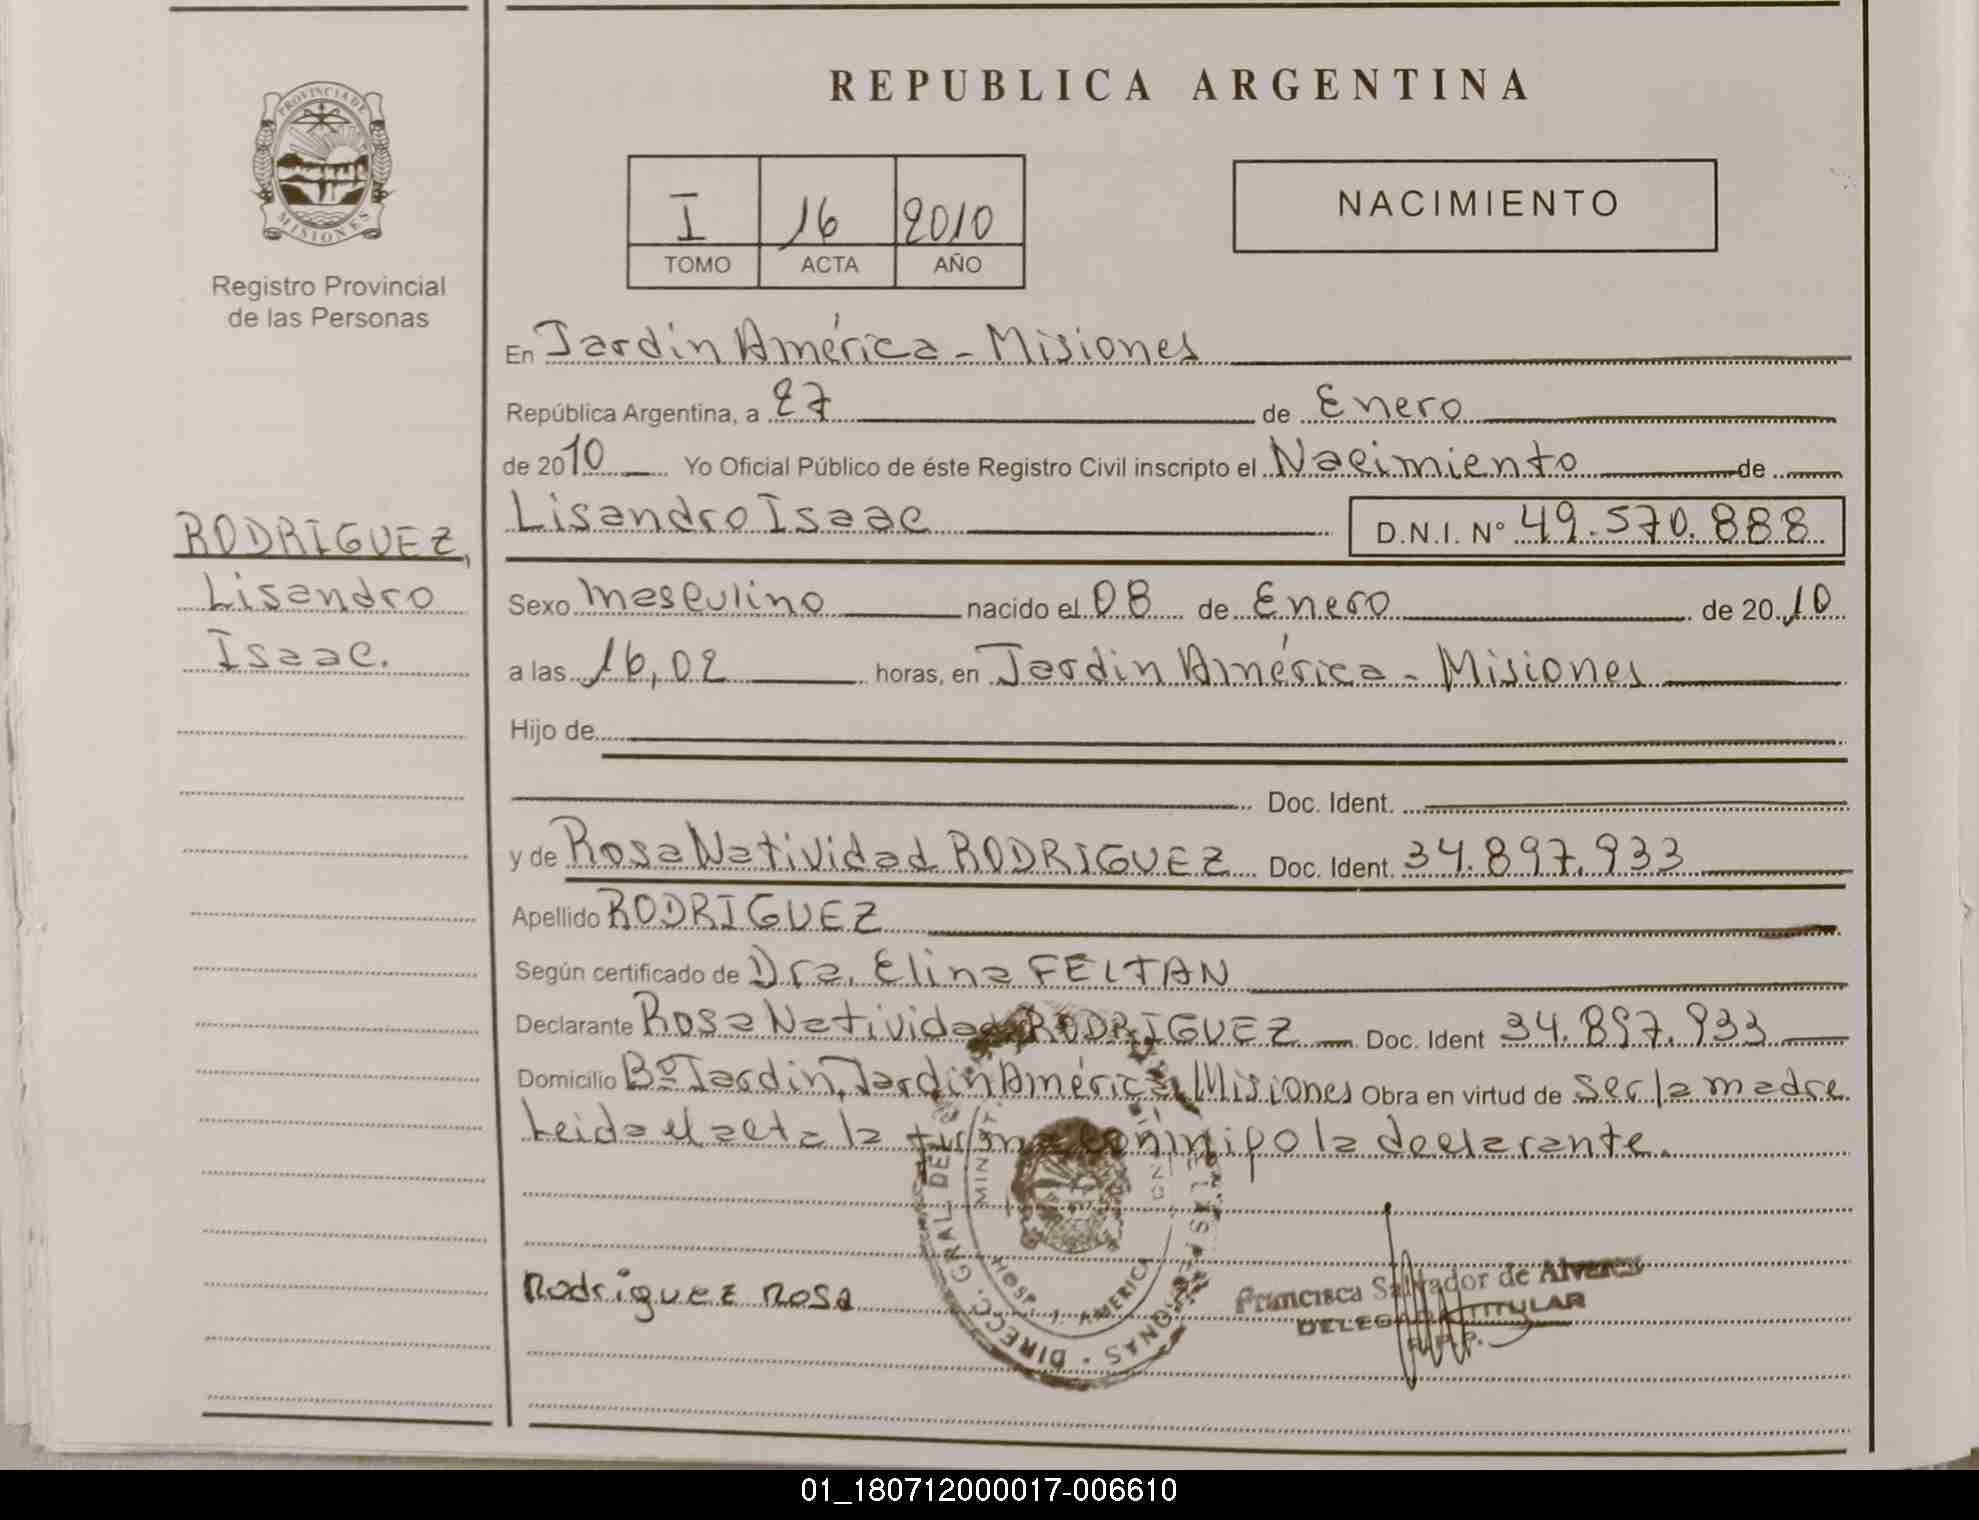 REPUBLICA ARGENTINA
PROVINCIA DE
MISIONES
Registro Provincial
de las Personas
I 16 2010
TOMO ACTA AÑO
NACIMIENTO
En Jardin América - Misiones
República Argentina, a 27 de Enero
de 2010 Yo Oficial Público de éste Registro Civil inscripto el Nacimiento de
Lisandro Isaac D.N.I. Nº 49.570.888
RODRIGUEZ,
Lisandro
Isaac.
Sexo masculino nacido el 08 de Enero de 2010
a las 16,02 horas, en Jardin América - Misiones
Hijo de
Doc. Ident.
y de Rosa Natividad RODRIGUEZ Doc. Ident. 34.897.933
Apellido RODRIGUEZ
Según certificado de Dra. Elina FELTAN
Declarante Rosa Natividad RODRIGUEZ Doc. Ident 34.897.933
Domicilio Bº Jardin, Jardin América, Misiones Obra en virtud de ser la madre
Leida el acta la firma conmigo la declarante.
Rodriguez Rosa
DIRECC. GRAL. DEL
HOSP. J. AMERICA
Francisca Salvador de Alvarez
DELEGADA TITULAR
R.P.P.
01_180712000017-006610